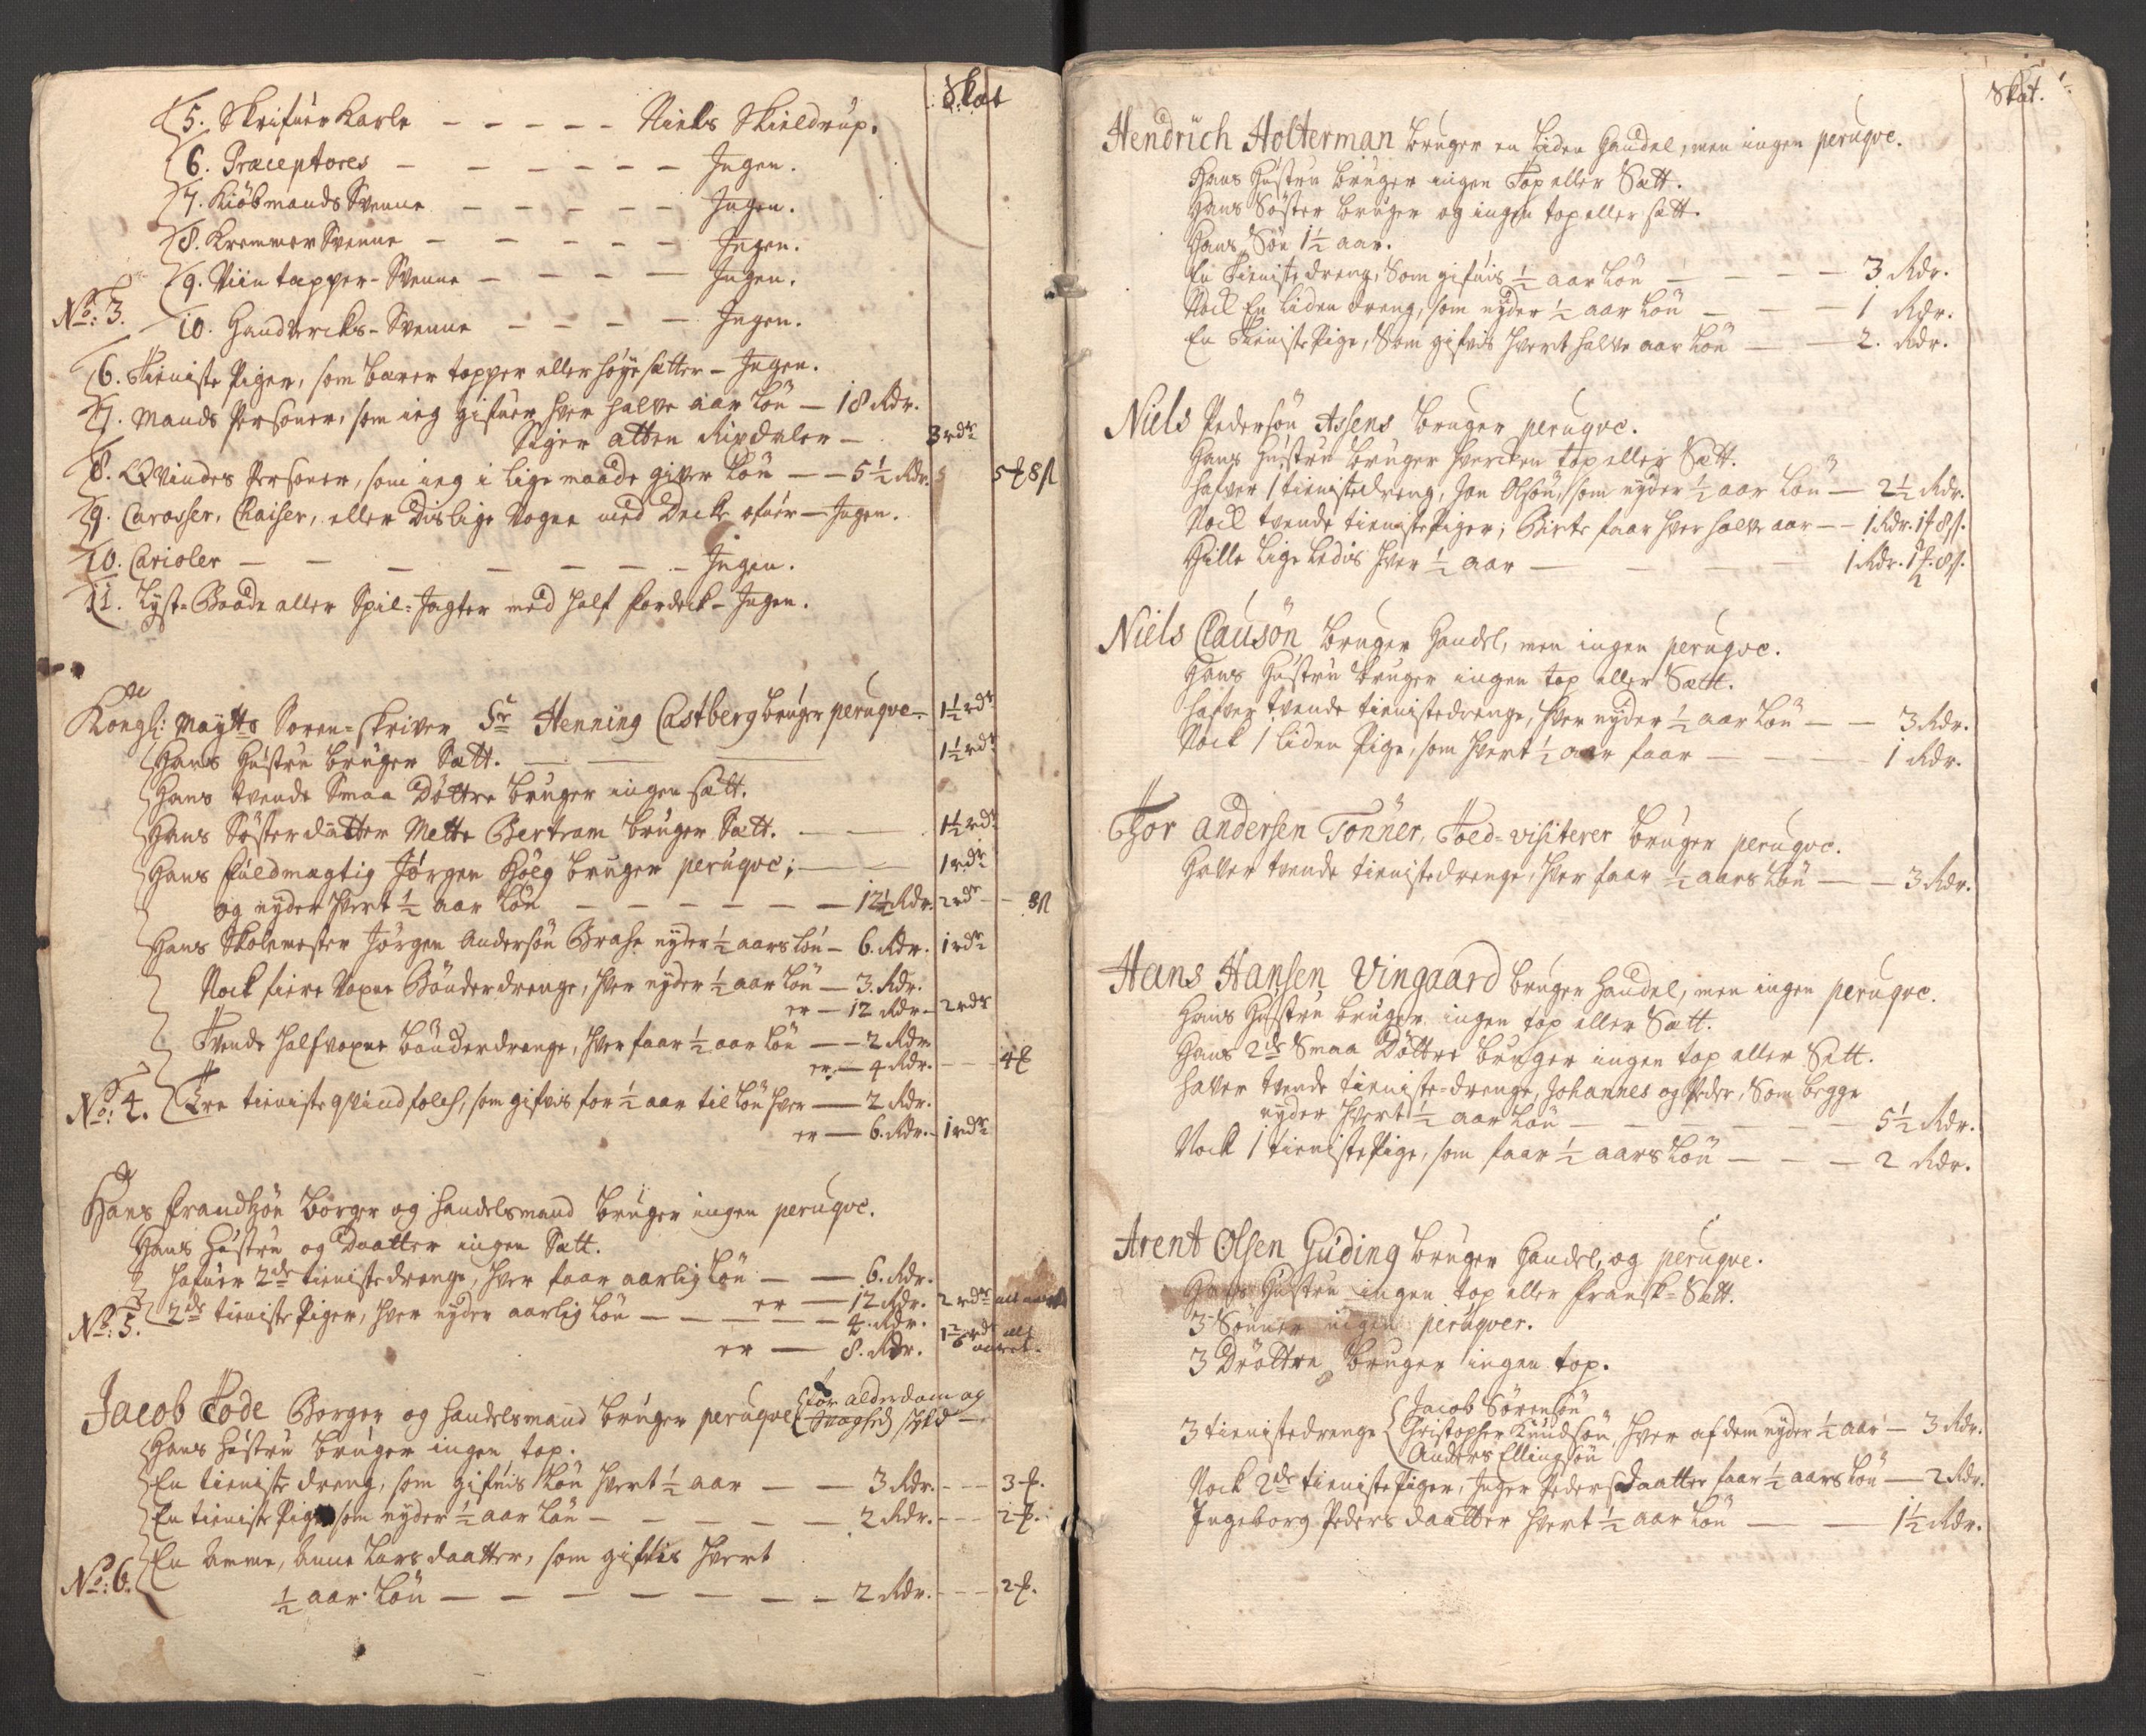 Skat
5. Skrifuer Karle – – – – – Niels Skieldrup.
6. Præceptores – – – – – – Ingen.
7. Kiöbmands Svenne – – – – – Ingen.
8. Kremmer Svenne – – – – – Ingen.
9. Viintapper-Svenne – – – – Ingen.
No: 3. 10. Handverks-Svenne – – – – Ingen.
6. Tieniste Piger, som bærer topper eller höye sætter – Ingen.
7. Mands Personer, som ieg gifuer hver halve aar Lön – 18 Rdr.
Siger atten Rixdaler – 3 rdr
8. Qvindes Personer, som ieg i lige maade giver Lön – – 5½ Rdr.
9. Carosser, Chaiser, eller dislige Vogne med Decke ofuer – Ingen.
10. Carioler – – – – – – – Ingen.
11. Lyst-Baade eller Spil-Jagter med half fordeck – Ingen.
Kongl: Maytts Soren-skriver Sr Henning Castberg bruger peruqve – 1½ rdr
Hans Hustru bruger Sætt. – – – 1½ rdr
Hans tvende Smaa Döttre bruger ingen sætt.
Hans Sösterdatter Mette Bertram bruger Sætt. – – 1½ rdr
Hans fuldmægtig Jörgen Höeg bruger peruqve; – – 1 rdr
og nyder hvert ½ aar Lön – – – – – – 12½ Rdr. 2 rdr – – 8 ß
Hans Skolemester Jörgen Andersön Brase nyder ½ aars Lön – 6. Rdr. 1 rdr
Nock fiere Voxne Bönderdrenge, hver nyder ½ aar Lön – 3. Rdr.
er – 12 Rdr – 2 rdr
Tvende halfvoxne bönderdrenge, hver faar ½ aar Lön – – 2 Rdr
er – 4 Rdr. – – – 4
No: 4. Tre tieniste qvindfolch, som gifvis for ½ aar til Lön hver – 2 Rdr.
er – 6. Rdr. – 1 rdr
Hans frandtzön Borger og Handelsmand bruger ingen peruqve.
Hans Hustru og Daatter ingen Sætt.
Hafuer 2de tienistedrenge, hver faar aarlig Lön – – 6. Rdr.
er – 12 Rdr. 2 rdr
No: 5. 2de tieniste Piger, hver nyder aarlig Lön – – – – – 4. Rdr.
er – 8. Rdr.
Jacob Tode Borger og Handelsmand bruger peruqve for alderdom og
svaghed skyld –
Hans Hustru bruger ingen top.
En tieniste dreng, som gifuis Lön hvert ½ aar – – 3 Rdr. – – – 3
En tieniste Pige som nyder ½ aar Lön – – – – – 2 Rdr. – – – 2
En Amme, Anne Larsdaatter, som gifuis hvert
No: 6. ½ aar Lön – – – – – – – 2 Rdr. – – – 2
Skat.
Hendrich Holterman bruger en Liden Handel, men ingen peruqve.
Hans Hustru bruger ingen Top eller Sætt.
Hans Söster bruger og ingen top eller sætt.
Hans Sön 1½ aar.
En Tieniste dreng, Som gifuis ½ aar Lön – – – – 3 Rdr.
Nock En Liden dreng, som nyder ½ aar Lön – – – 1 Rdr.
En Tieniste Pige, Som gifvis hvert halve aar Lön – – 2. Rdr.
Niels Pedersön Assens bruger peruqve.
Hans Hustru bruger hvercken top eller Sætt.
hafver 1 tienistedreng, Jon Olsön, som nyder ½ aar Lön – 2½ Rdr.
Nock tvende tieniste Piger; Birte faar hver halve aar – – 1 Rdr. 1 8 ß.
Hille lige ledis hver ½ aar – – – – 1 Rdr. 1 8 ß.
Niels Clausön bruger Handel, men ingen peruqve.
Hans Hustru bruger ingen top eller Sætt.
hafver tvende tienistedrenge, hver nyder ½ aar Lön – – 3 Rdr.
Nock 1 liden Pige, som hvert ½ aar faar – – – – 1 Rdr.
Thor Andersen Tönner, Toed-visiterer bruger peruqve.
Haver tvende tienistedrenge, hver faar ½ aars Lön – – 3 Rdr.
Hans Hansen Vingaard bruger Handel, men ingen peruqve.
Hans Hustru bruger ingen top eller Sætt.
Hans 2de Smaa Döttre bruger ingen top eller Sett.
haver tvende tieniste-drenge, Johannes og Peder, Som begge
nyder hvert ½ aar Lön – – – – – – 5½ Rdr.
Nock 1 tieniste Pige, som faar ½ aars Lön – – – 2 Rdr.
Arent Olsen Guding bruger Handel, og peruqve.
Hans Hustru ingen top eller fransk-Sætt.
3 Sönner ingen peruqver.
3 Döttre bruger ingen top.
Jacob Sörensön
3 tienistedrenge Christopher Knudsön hver af dem nyder ½ aar – 3 Rdr.
Anders Ellingsön
Nock 2de tieniste Piger, Inger Pedersdaatter faar ½ aars Lön – 2 Rdr.
Ingeborg Pedersdaatter hvert ½ aar Lön – – 1½ Rdr.